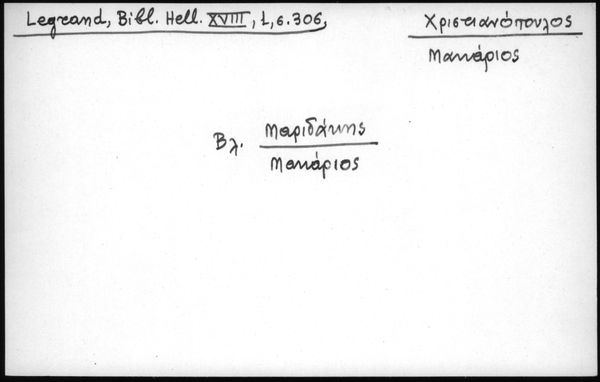 Legrand, Bibl. Hell. XVIII, 1, σ. 306,
Χριστιανόπουλος
Μακάριος
Βλ. Μαριδάκης
Μακάριος